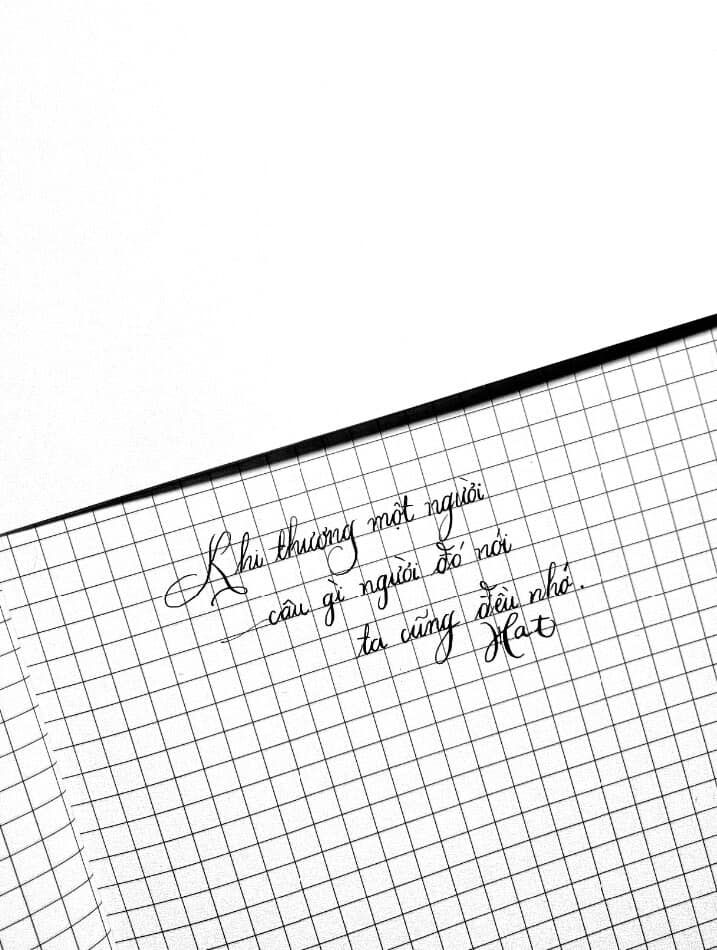 Khi thương một người
câu gì người đó nói
ta cũng đều nhớ.
Hat